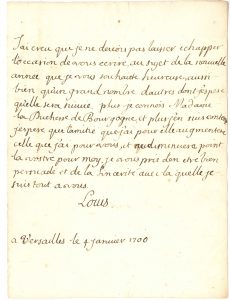 J'ai creu que je ne devois pas laisser eschapper
l'occasion de vous ecrire, au sujet de la nouvelle
année que je vous souhaite heureuse, aussi
bien qu'un grand nombre d'autres dont j'espere
qu'elle sera suivie, plus je connois Madame
la Duchesse de Bourgogne, et plus j'en suis content
j'espere que l'amitié que j'ai pour elle augmentera
celle que j'ai pour vous, et ne diminuera point
la vostre pour moy, je vous prie d'en etre bien
persuadé et de la sincerité avec la quelle je
suis tout a vous.
Louis.
a Versailles le 4 janvier 1700